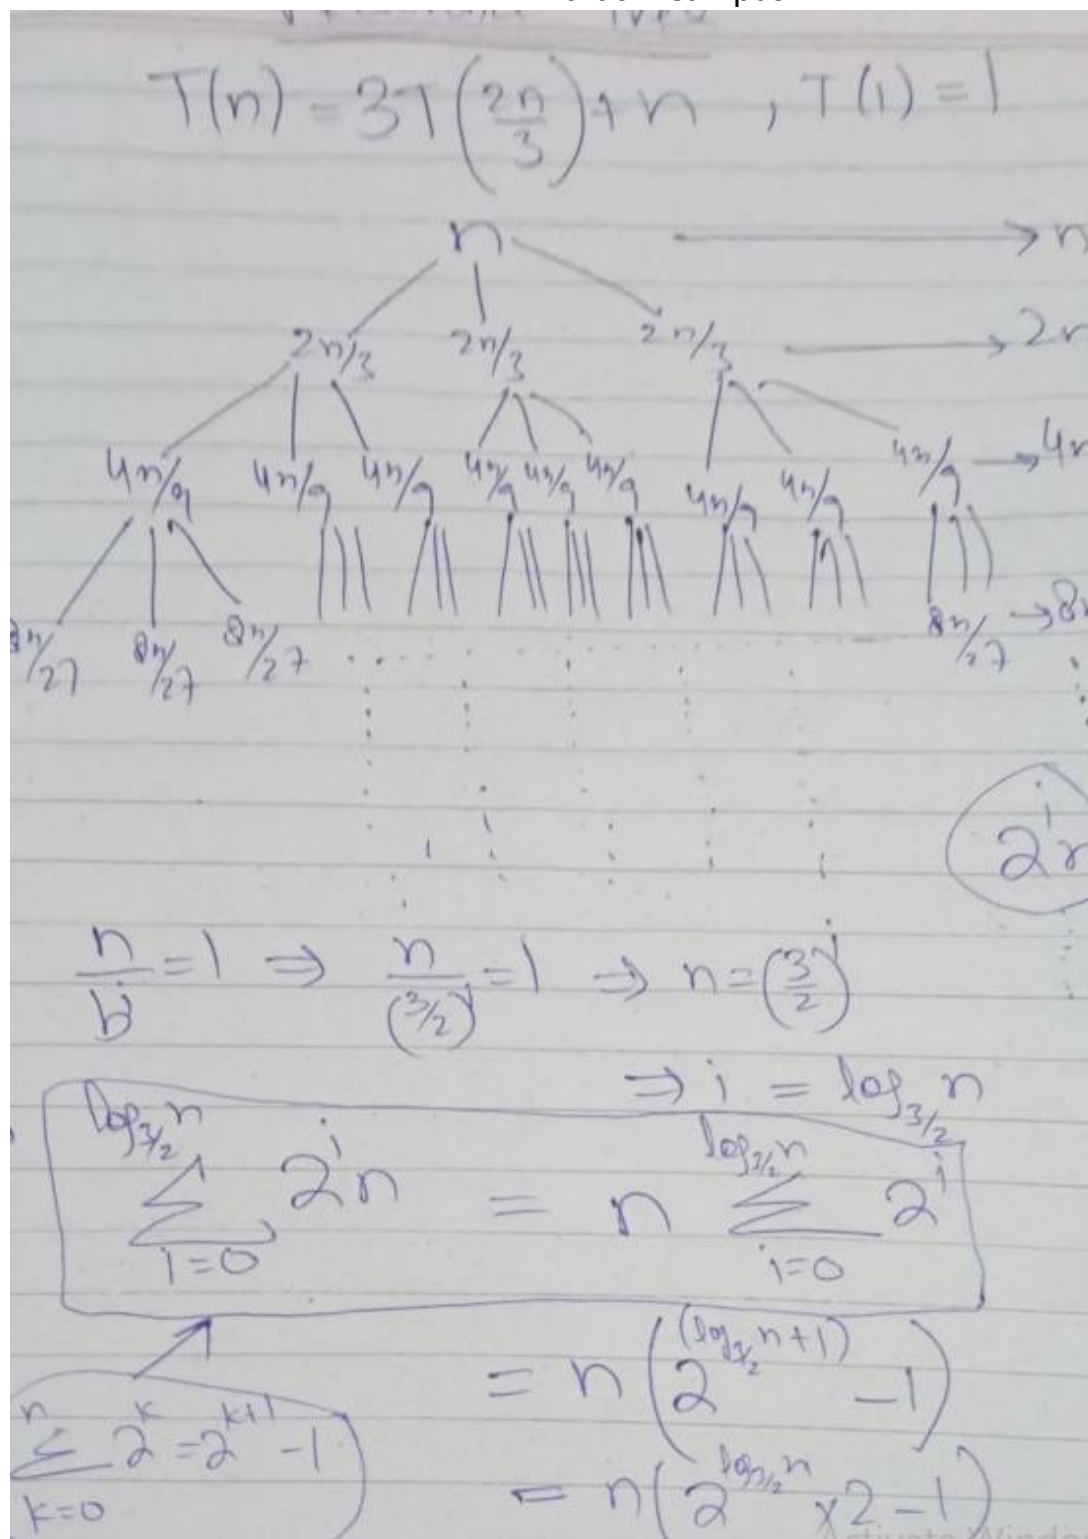 T(n) = 3T(2n/3) + n , T(1) = 1
n → n
2n/3 2n/3 2n/3 → 2n
4n/9 4n/9 4n/9 4n/9 4n/9 4n/9 4n/9 4n/9 4n/9 → 4n
8n/27 8n/27 8n/27 8n/27 → 8n
2^i n
n/b^i = 1 ⇒ n/(3/2)^i = 1 ⇒ n = (3/2)^i
⇒ i = log_{3/2} n
∑_{i=0}^{log_{3/2} n} 2^i n = n ∑_{i=0}^{log_{3/2} n} 2^i
= n(2^{(log_{3/2} n+1)} - 1)
∑_{k=0}^{n} 2^k = 2^{k+1} - 1
= n(2^{log_{3/2} n} × 2 - 1)